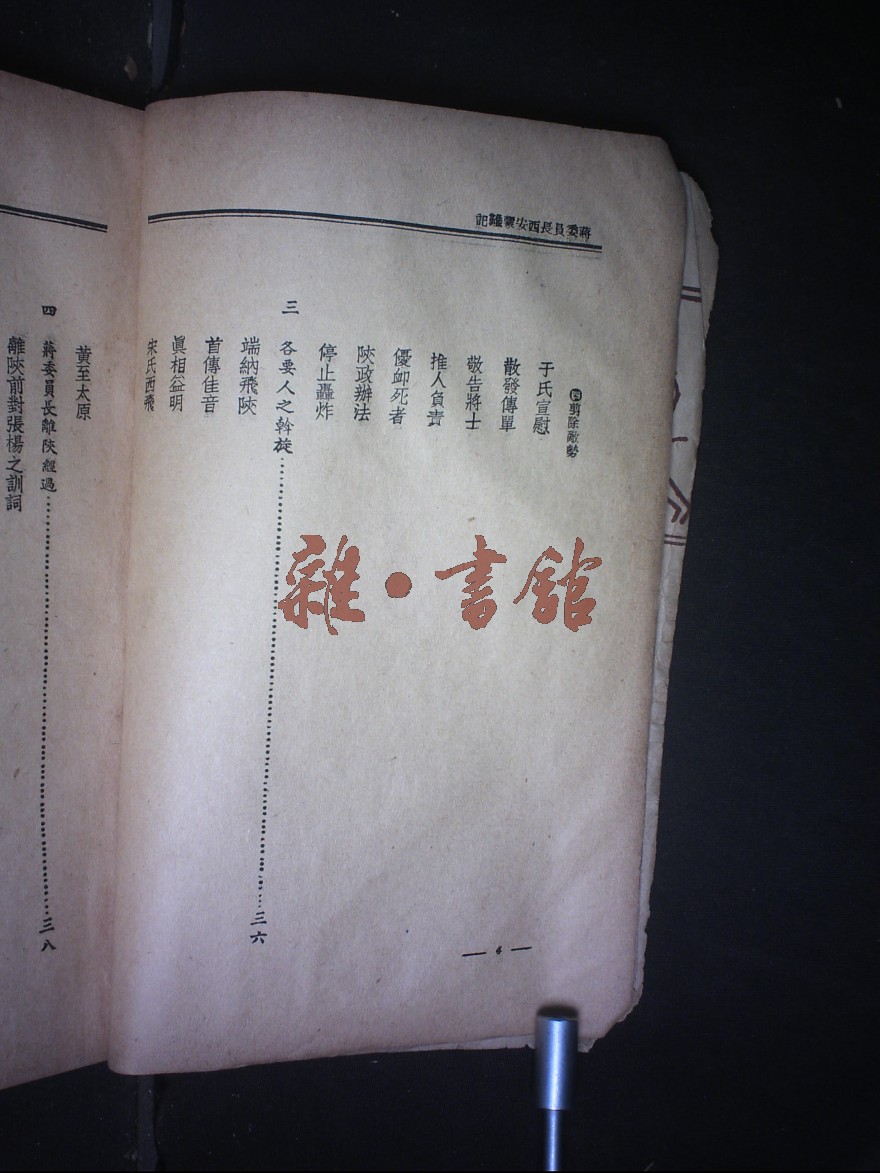 蔣委員長西安蒙難記
㈣剪除敵勢
于氏宣慰
散發傳單
敬告將士
推人負責
優卹死者
陝政辦法
停止轟炸
三 各要人之斡旋……三六
端納飛陝
首傳佳音
眞相益明
宋氏西飛
黃至太原
四 蔣委員長離陝經過……三八
離陝前對張楊之訓詞
— 4 —
雜·書館